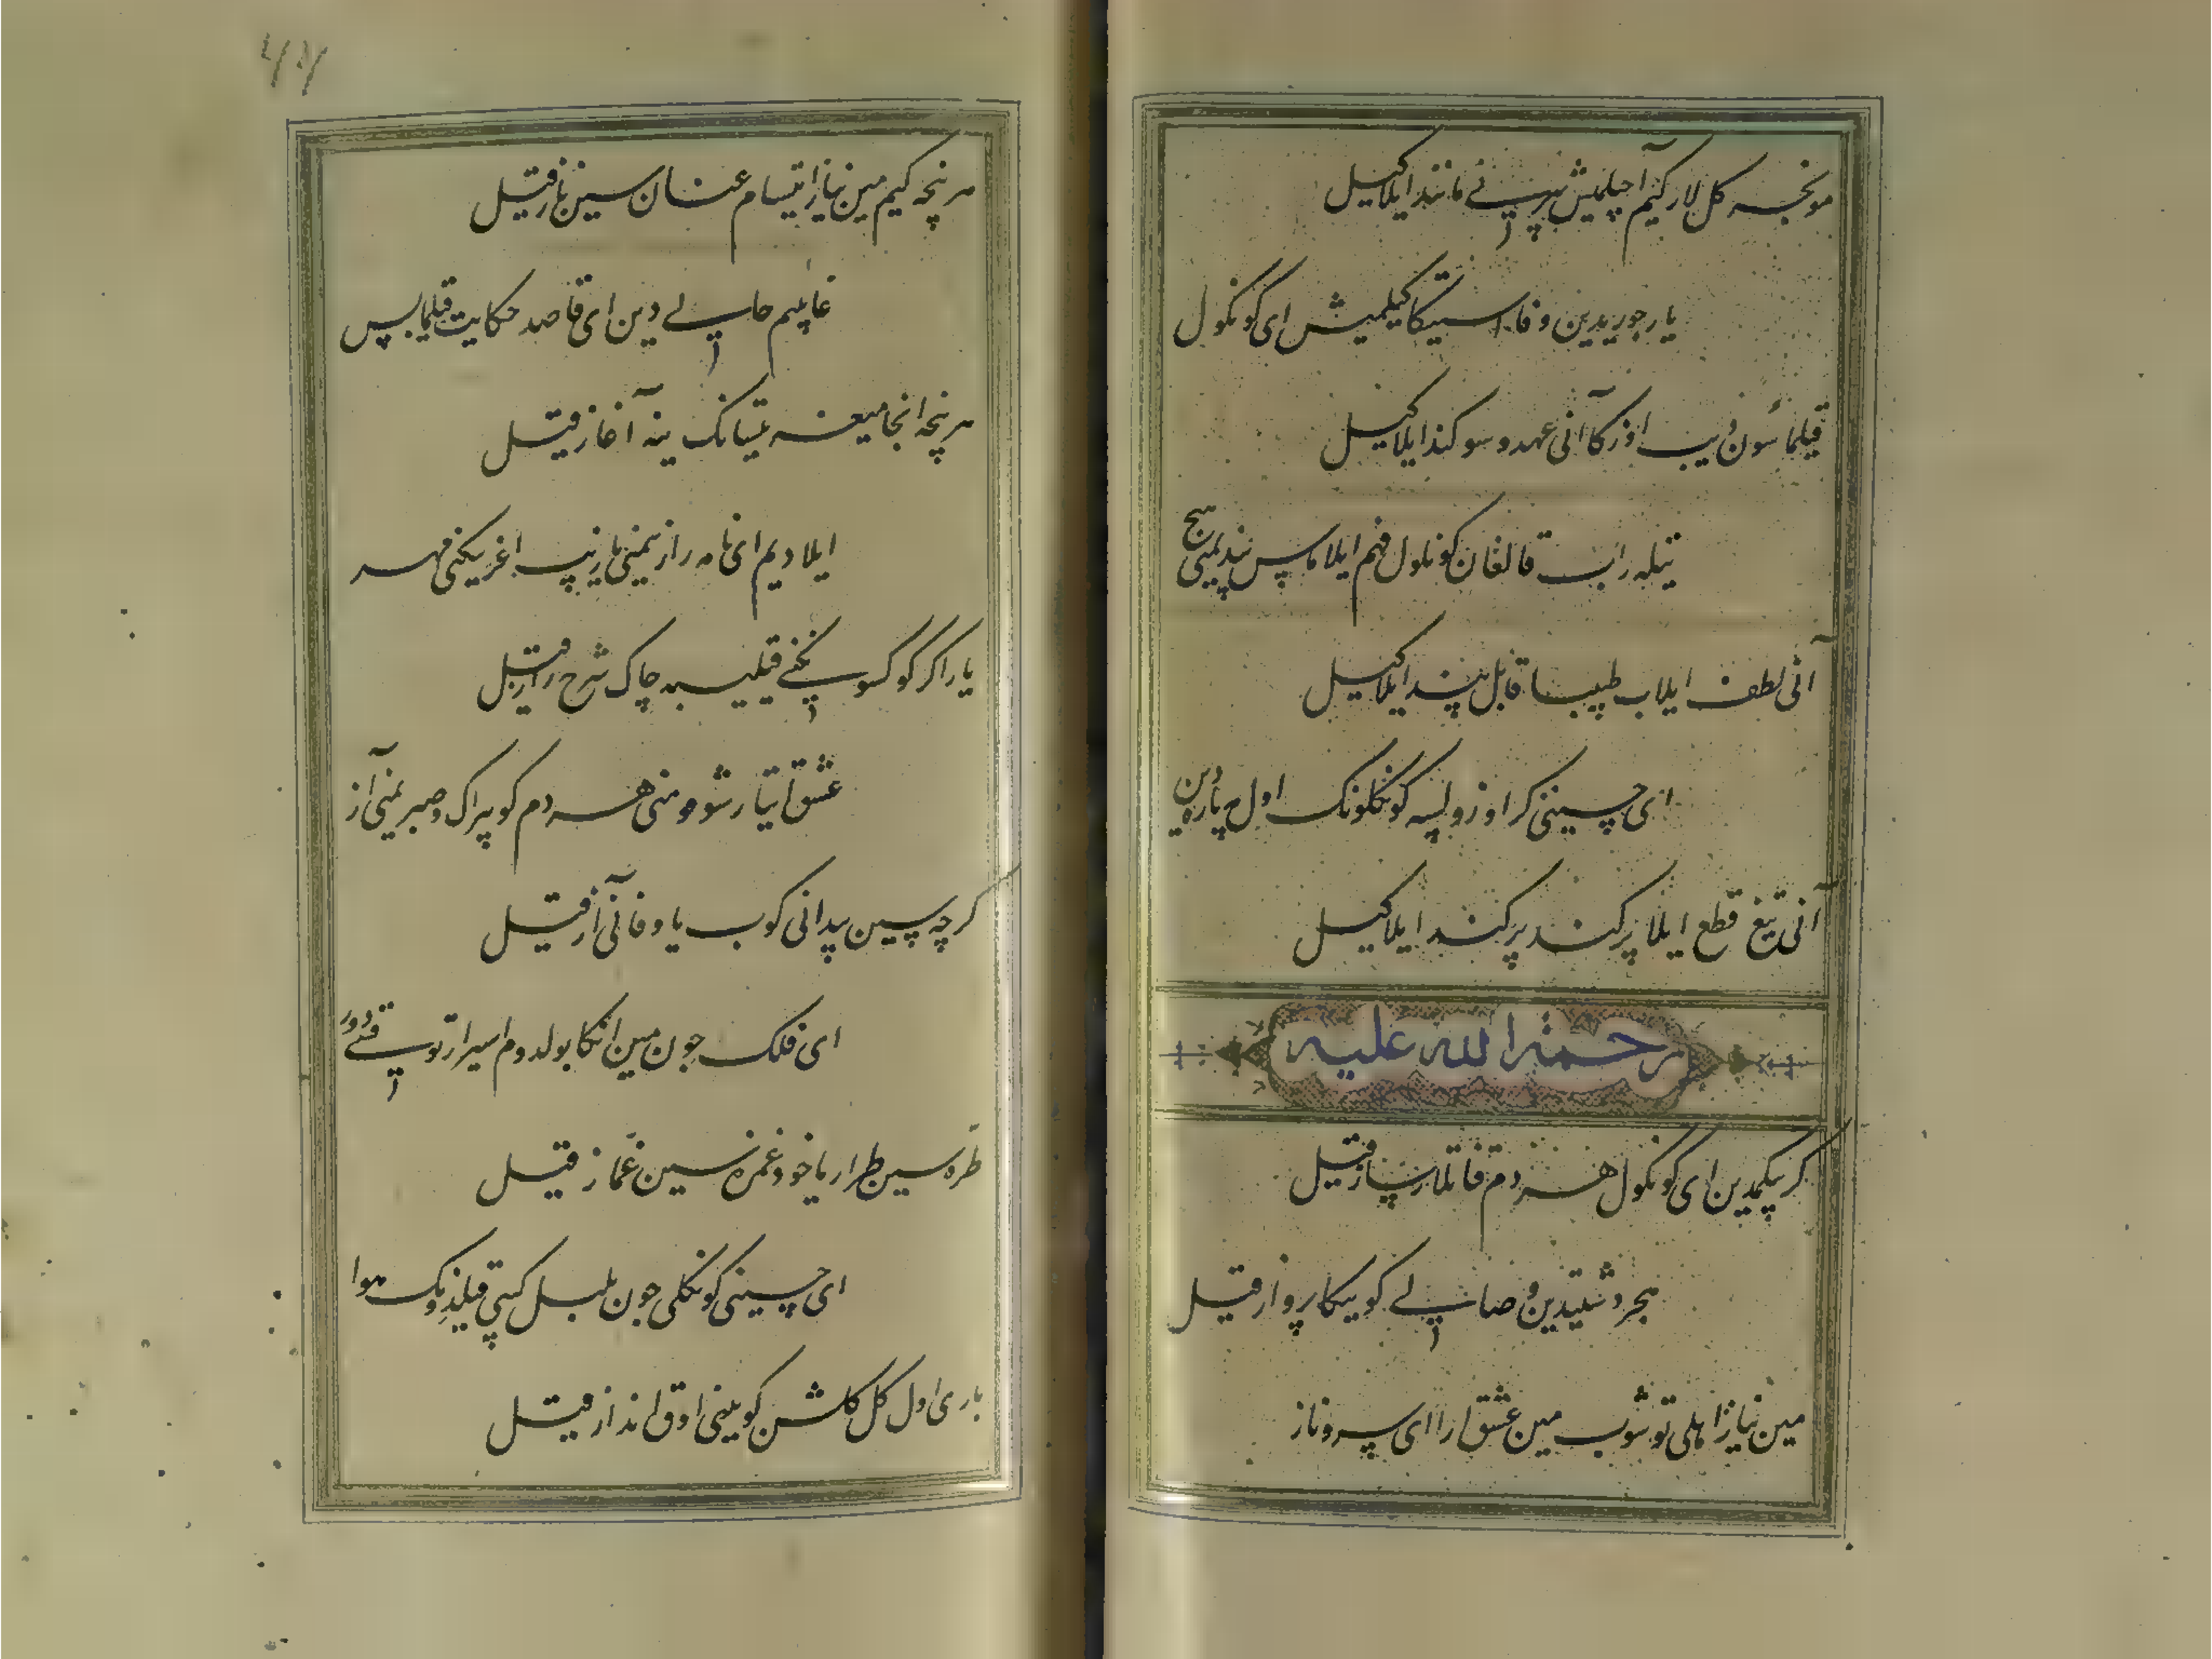 مونجه کل لار کیم آچیلمیش بیرینی مانند ایلاکیل
یار جوریدین وفا استیکا کیلمیش ای کونکول
قیلماسون دیب اوزکا آنی عهد و سوکند ایلاکیل
تیلبه راب قالغان کونکول فهم ایلاماس پندیمنی هیچ
آنی لطف ایلاب طبیبا قابل پند ایلاکیل
ای حسینی کر اوزولسه کونکلونک اول مه پاره دین
آنی تیغ قطع ایلا پرکند پرکند ایلاکیل
رحمة الله علیه
کر پیکمدین ای کونکول هر دم قاتلار ساز قیل
هجر دشتیدین وصالی کوییکا پرواز قیل
مین نیاز اهلی توشوب مین عشق ارا ای سرو ناز
هر نیچه کیم مین نیاز ایتسام عنان سین ناز قیل
غایبیم حالی دین ای قاصد حکایت قیلمای بس
هر نیچه انجامیغه یتسانک ینه آغاز قیل
ایلادیم ای نامه رازیمنی یازیب اغزینکنی مهر
یار اکر کوکسونکنی قیلیسه چاک شرح راز قیل
عشق ایتار شومنی هر دم کوپراک و صبریمنی آز
کرچه سین پیدانی کوب یا وفانی آز قیل
ای فلک چون مین انکا بولدوم اسیر ارتوقسی دور
طره سین طرار یاخود غمزه سین غماز قیل
ای حسینی کونکلی چون بلبل کیبی قیلدینک هوا
باری اول کل کلشن کویینی اوق انداز قیل